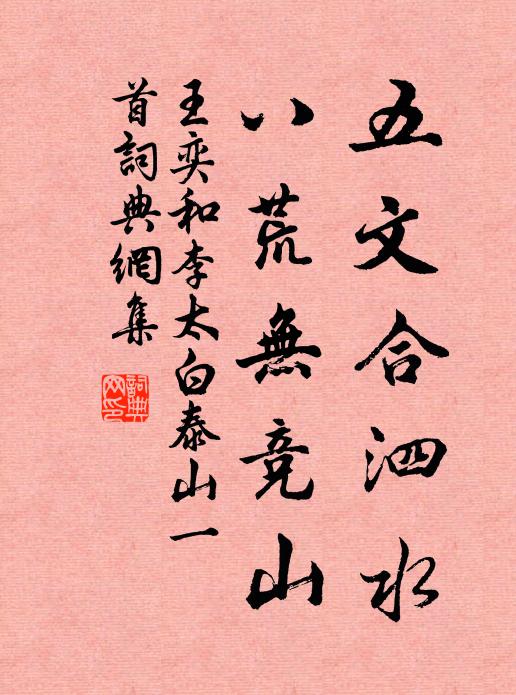 五文合泗水
八荒無竞山
王奕和李太白泰山一
首詞典網集
詞典
网印